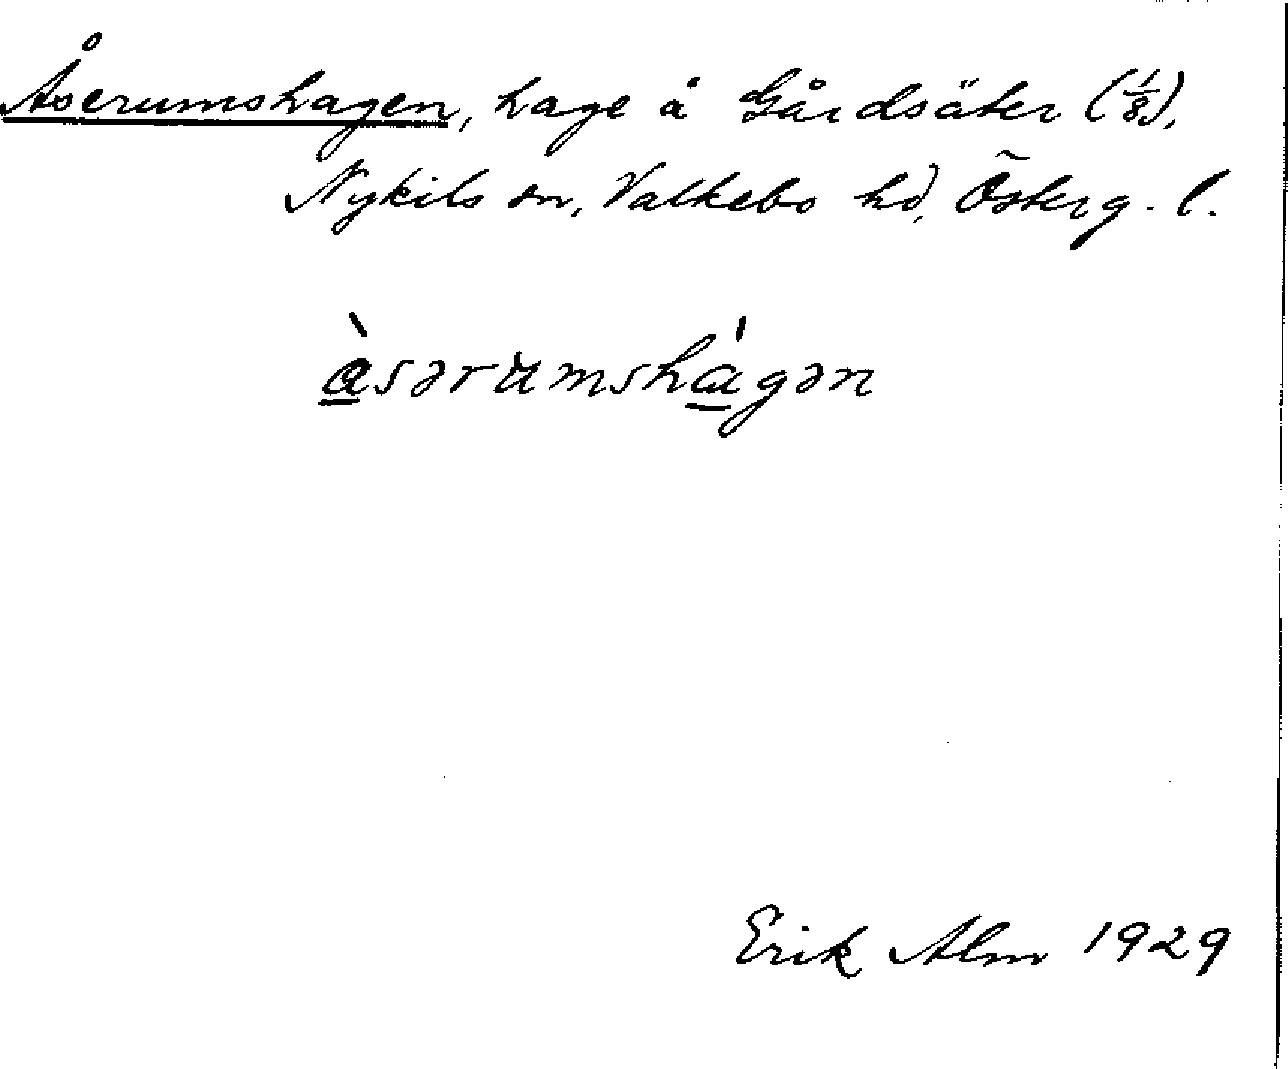 Åserumshagen, hage å Gårdsäter (1/8),
Nykils sn, Valkebo hd, Österg. l.
à̲sərumshá̲gən
Erik Alm 1929